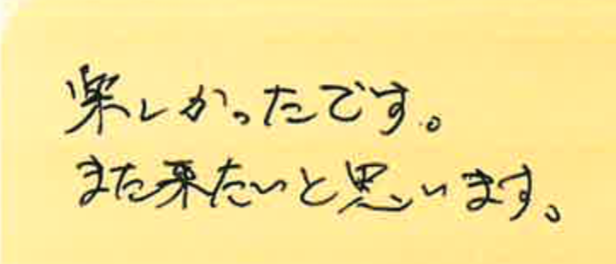 楽しかったです。
また来たいと思います。